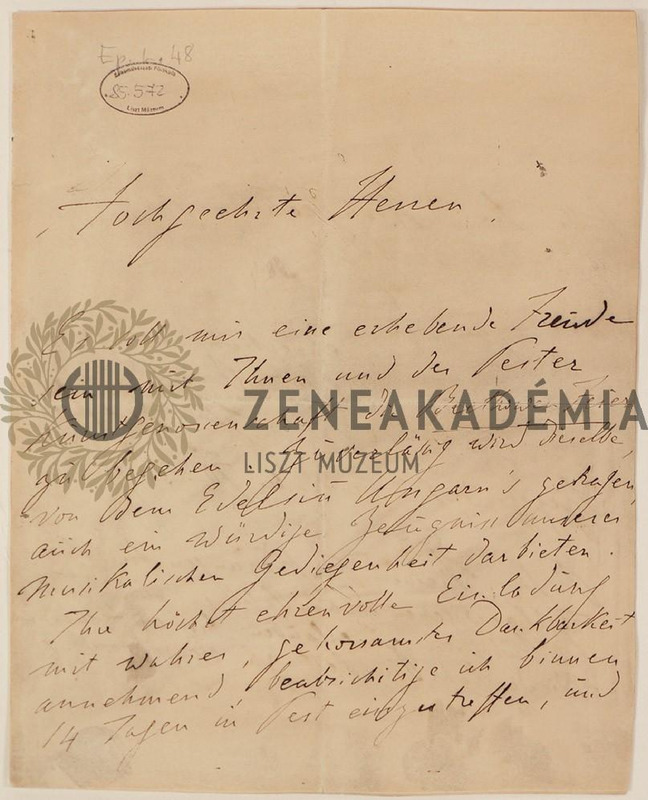 Ep. 48
Zeneművészeti Főiskola
85.572
Liszt Múzeum
Hochgeehrte Herren,
Es soll mir eine erhebende Freude
sein mit Ihnen und der Pester
Kunstgenossenschaft die Beethoven Feier
zu begehen. Zuverlässig wird dieselbe,
von dem Edelsinn Ungarn's getragen,
auch ein würdige Zeugniss unserer
musikalischen Gediegenheit darbieten.
Ihre höchst ehrenvolle Einladung
mit wahrer, gehorsamster Dankbarkeit
annehmend beabsichtige ich binnen
14 Tagen in Pest einzutreffen, und
ZENEAKADÉMIA
LISZT MÚZEUM